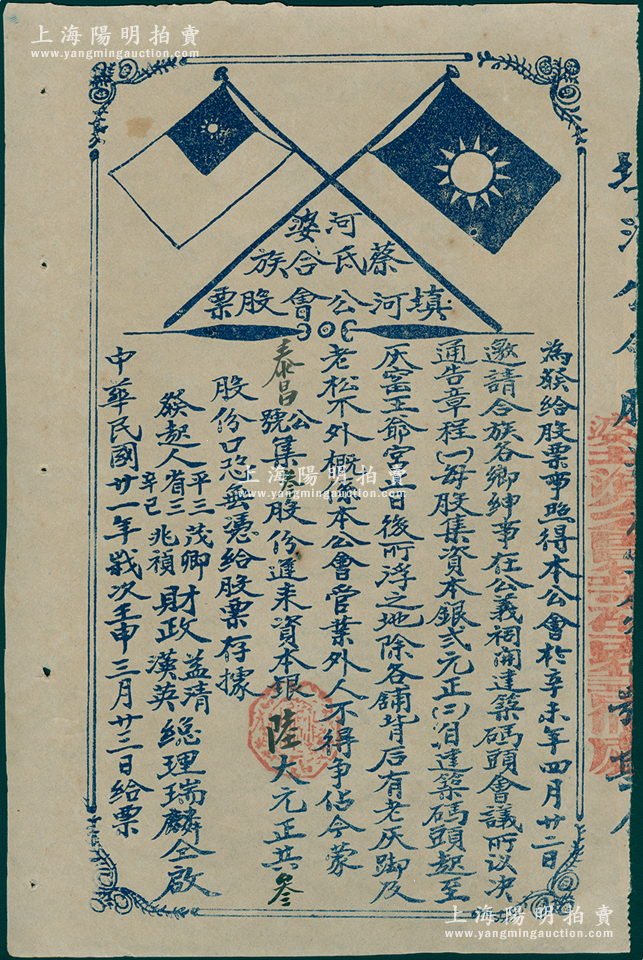 上海陽明拍賣
www.yangmingauction.com
河婆
蔡氏合族
填河公會股票
為發給股票事照得本公會於辛未年四月廿二日
邀請合族各鄉紳事在公義祠開建築碼頭會議所议决
通告章程(一)每股集資本銀弍元正(二)自建築碼頭起至
灰窰王爺宮止日後所浮之地除各鋪背后有老灰脚及
老松不外概係本公會管業外人不得争佔今蒙
泰昌公號集叁股份進来資本銀陸大元正共叁
股份口恐無憑給股票存據
發起人 平三 省三 辛己 茂卿 兆禎 財政 益清 漢英 總理 瑞麟 仝啟
中華民國廿一年歲次壬申三月廿三日給票
上海陽明拍賣
www.yangmingauction.com
上海陽明拍賣
www.yangmingauction.com